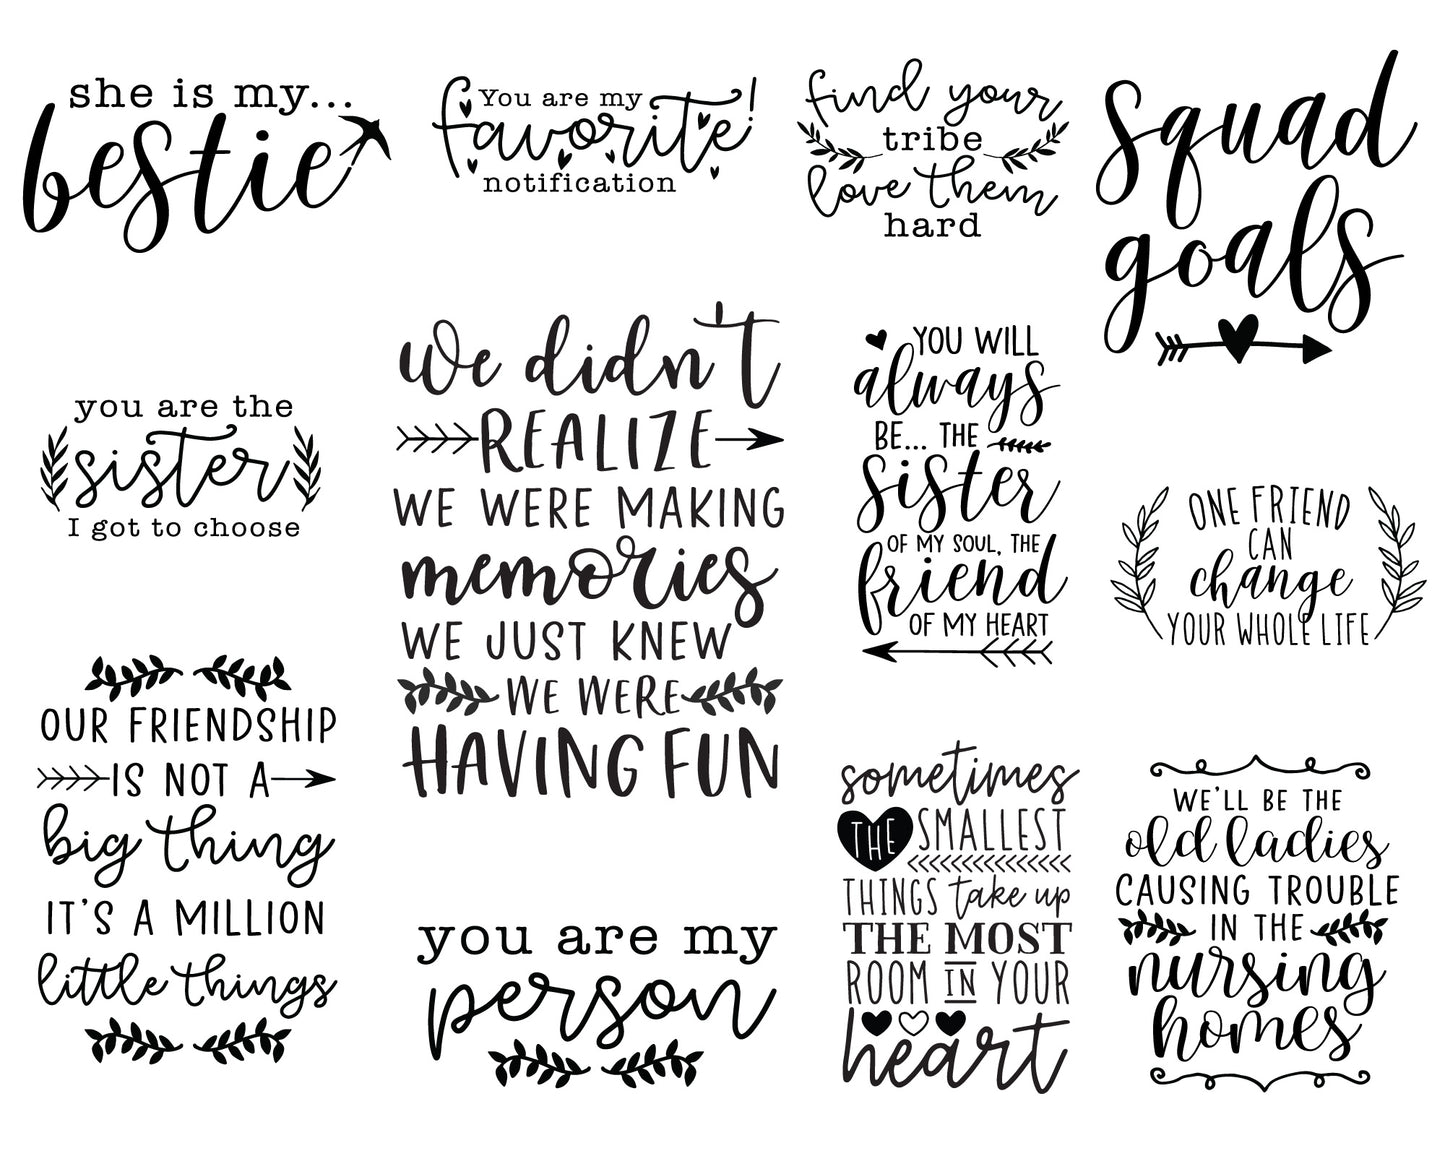 she is my...
bestie
You are my
favorite!
notification
find your
tribe
love them
hard
squad
goals
you are the
sister
I got to choose
we didn't
REALIZE
WE WERE MAKING
memories
WE JUST KNEW
WE WERE
HAVING FUN
YOU WILL
always
BE... THE
sister
OF MY SOUL, THE
friend
OF MY HEART
ONE FRIEND
CAN
change
YOUR WHOLE LIFE
OUR FRIENDSHIP
IS NOT A
big thing
IT'S A MILLION
little things
you are my
person
sometimes
THE SMALLEST
THINGS take up
THE MOST
ROOM IN YOUR
heart
WE'LL BE THE
old ladies
CAUSING TROUBLE
IN THE
nursing
homes